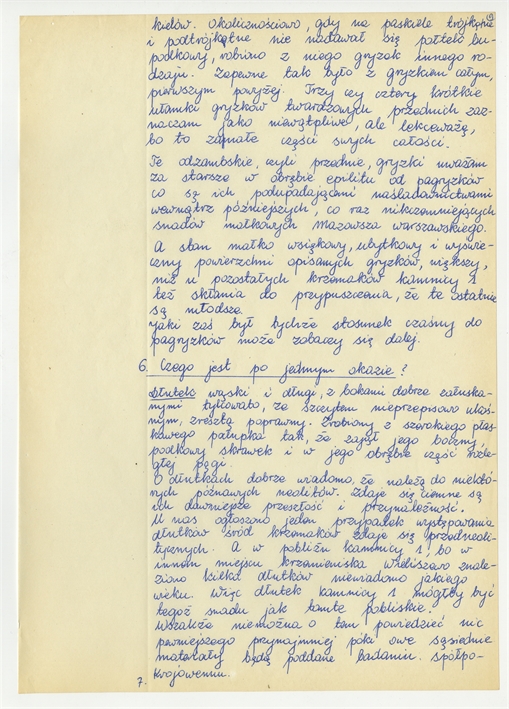 kielów. Okolicznościowo, gdy na paskiele trójkątne
i podtrójkątne nie nadawał się półtelc bu-
podkowy, robiono z niego gryzak innego ro-
dzaju. Zapewne tak było z gryzkiem całym,
pierwszym powyżej. Trzy czy cztery krótkie
ułamki gryzków twardzcowych przednich zaz-
naczam jako niewątpliwe, ale lekceważę,
bo to zamałe części swych całości.
Te odzambskie, czyli przednie, gryzki uważam
za starsze w obrębie epilitu od pagryzków
co są ich podupadającemi naśladownictwami
wewnątrz późniejszych, co raz nikczemniejących
snadów matkowych Mazowsza warszawskiego.
A stan matko wsiąkowy, ubytkowy i wyświe-
czny powierzchni opisanych gryzków, większy,
niż u pozostałych krzemaków kamnicy 1
też skłania do przypuszczenia, że te ostatnie
są młodsze.
Jaki zaś był tychże stosunek czasmy do
pagryzków może zobaczy się dalej.
6. Czego jest po jednym okazie?
Dłutek wąski i długi, z bokami dobrze załuska-
nymi tyłowato, ze szczytem nieprzepisowo ukoś-
nym, zresztą poprawny. Zrobiony z szerokiego płas-
kawego pałupka tak, że zajął jego boczny,
podkowy skrawek i w jego obrębie część rozle-
głej pęgi.
O dłutkach dobrze wiadomo, że należą do niektó-
rych późnawych neolitów. Zdaje się ciemne są
ich dawniejsze przeszłość i przynależność.
U nas ogłoszono jeden przypadek występowania
dłutków śród krzemaków zdaje się przedneoli-
tycznych. A w pobliżu kamnicy 1, bo w
innem miejscu krzemieniska Wieliszewo znale-
ziono kilka dłutków niewiadomo jakiego
wieku. Więc dłutek kamnicy 1 mógłby być
tegoż snadu jak tamte pobliskie.
Wszakże niemożna o tem powiedzieć nic
pewniejszego przynajmniej póki owe sąsiednie
materiały będą poddane badaniu spółpo-
krojowemu.
7.